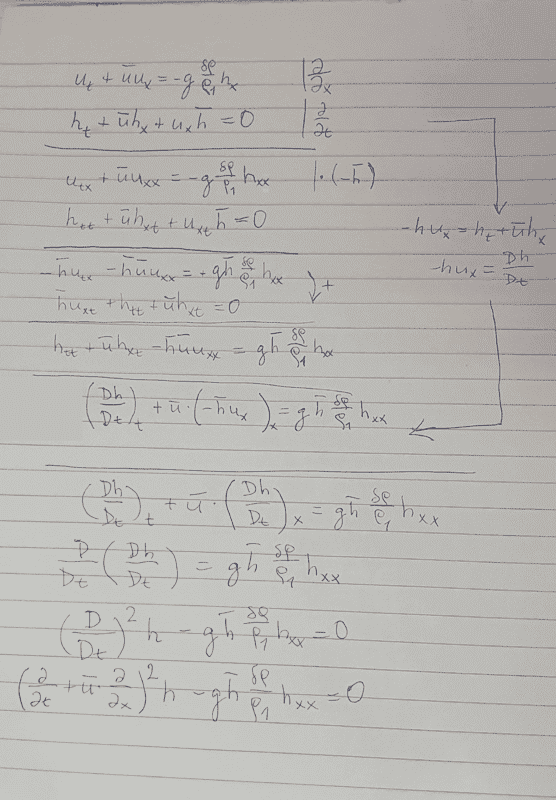 u_t + ūu_x = -g δρ/ρ₁ h_x | ∂/∂x
h_t + ūh_x + u_x h̄ = 0 | ∂/∂t
u_tx + ūu_xx = -g δρ/ρ₁ h_xx | · (-h̄)
h_tt + ūh_xt + u_xt h̄ = 0
-hu_x = h_t + ūh_x
-hu_x = Dh/Dt
-h̄u_tx - h̄ūu_xx = +gh̄ δρ/ρ₁ h_xx +
h̄u_xt + h_tt + ūh_xt = 0
h_tt + ūh_xt - h̄ūu_xx = gh̄ δρ/ρ₁ h_xx
(Dh/Dt)_t + ū · (-h̄u_x)_x = gh̄ δρ/ρ₁ h_xx
(Dh/Dt)_t + ū · (Dh/Dt)_x = gh̄ δρ/ρ₁ h_xx
D/Dt (Dh/Dt) = gh̄ δρ/ρ₁ h_xx
(D/Dt)² h - gh̄ δρ/ρ₁ h_xx = 0
(∂/∂t + ū · ∂/∂x)² h - gh̄ δρ/ρ₁ h_xx = 0